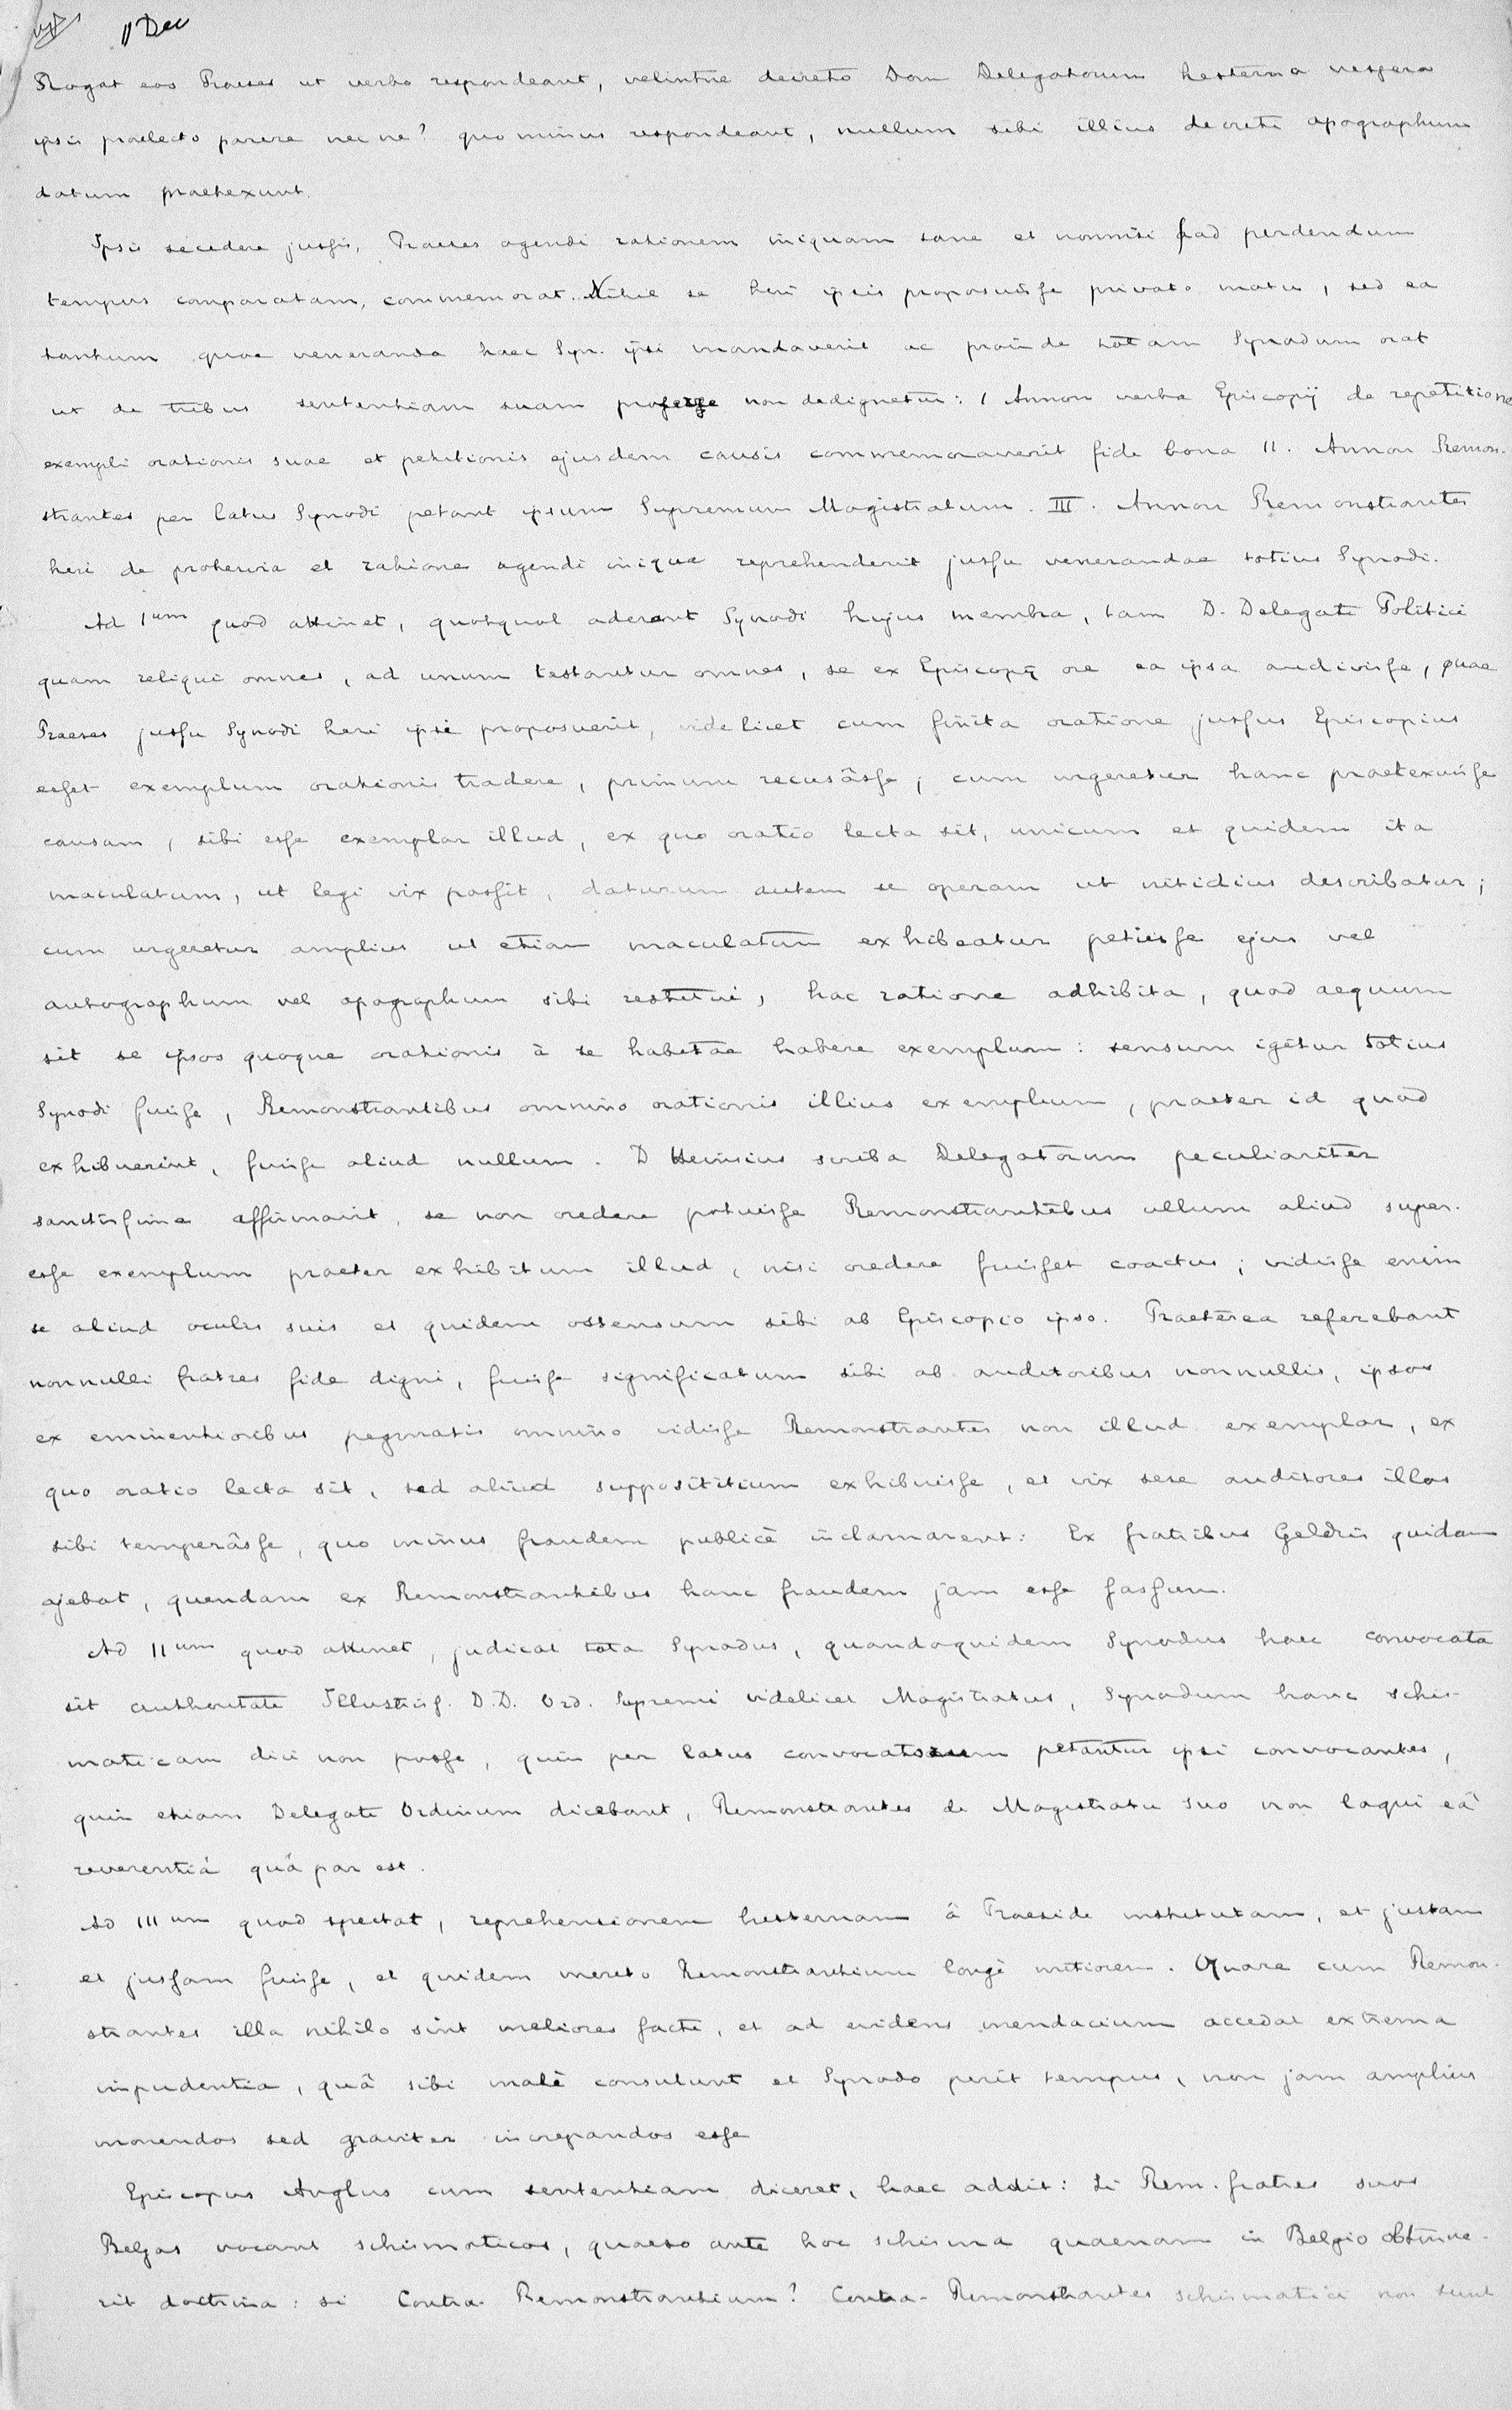 11 Dec
Rogat eos Praeses ut verbo respondeant, velintne decreto Dom Delegatorum hesterna vespera
ipsis praelecto parere nec ne? quo minus respondeant, nullum sibi illius decreti apographum
datum praetexunt.
Ipsis secedere jussis, Praeses agendi rationem iniquam sane et nonnisi ad perdendum
tempus comparatam, commemorat. Nihil se heri ipsis proposuisse privato motu, sed ea
tantum quae veneranda haec Syn. ipsi mandaverit ac proinde totam Synodum orat
ut de tribus sententiam suam non dedignetur: 1 Annon verba Episcopij de repetitione
exempli orationis suae et petitionis ejusdem causis commemoraverit fide bona II. Annon Remon-
strantes per latus Synodi petant ipsum Supremum Magistratum. III. Annon Remonstrantes
heri de protervia et ratione agendi iniqua reprehenderit jussu venerandae totius Synodi.
Ad 1um quod attinet, quotquot aderant Synodi hujus membra, tam D. Delegati Politici
quam reliqui omnes, ad unum testantur omnes, se ex Episcopij ore ea ipsa audivisse, quae
Praeses jussu Synodi heri ipsi proposuerit, videlicet cum finita oratione jussus Episcopius
esset exemplum orationis tradere, primum recusâsse; cum urgeretur hanc praetexuisse
causam, sibi esse exemplar illud, ex quo oratio lecta sit, unicum et quidem ita
maculatum, ut legi vix possit, daturum autem se operam ut nitidius describatur;
cum urgeretur amplius ut etiam maculatum exhibeatur petiisse ejus vel
autographum vel apographum sibi restitui, hac ratione adhibita, quod aequum
sit se ipsos quoque orationis à se habitae habere exemplum: sensum igitur totius
Synodi fuisse, Remonstrantibus omnino orationis illius exemplum, praeter id quod
exhibuerint, fuisse aliud nullum. D Heinsius scriba Delegatorum peculiariter
sanctissime affirmavit, se non credere potuisse Remonstrantibus ullum aliud super-
esse exemplum praeter exhibitum illud, nisi credere fuisset coactus; vidisse enim
se aliud oculis suis et quidem ostensum sibi ab Episcopio ipso. Praeterea referebant
nonnulli fratres fide digni, fuisse significatum sibi ab auditoribus nonnullis, ipsos
ex eminentioribus pegmatis omnino vidisse Remonstrantes non illud exemplar, ex
quo oratio lecta sit, sed aliud supposititium exhibuisse, et vix sese auditores illos
sibi temperâsse, quo minus fraudem publicè inclamarent: Ex fratribus Geldris quidam
ajebat, quendam ex Remonstrantibus hanc fraudem jam esse fassum.
Ad IIum quod attinet, judicat tota Synodus, quandoquidem Synodus haec convocata
sit authoritate Illustriss. D.D. Ord. Supremi videlicet Magistratus, Synodum hanc schis-
maticam dici non posse, quin per latus convocatorum petantur ipsi convocantes,
quin etiam Delegati Ordinum dicebant, Remonstrantes de Magistratu suo non loqui eâ
reverentiâ quâ par est.
Ad IIIum quod spectat, reprehensionem hesternam à Praeside institutam, et justam
et jussam fuisse, et quidem merito Remonstrantium longè mitiorem. Quare cum Remon-
strantes illa nihilo sint meliores facti, et ad evidens mendacium accedat extrema
impudentia, quâ sibi malè consulunt et Synodo perit tempus, non jam amplius
monendos sed graviter increpandos esse
Episcopus Anglus cum sententiam diceret, haec addit: Si Rem. fratres suos
Belgas vocant schismaticos, quaero ante hoc schisma quaenam in Belgio obtinue-
rit doctrina: si Contra-Remonstrantium? Contra-Remonstrantes schismatici non sunt